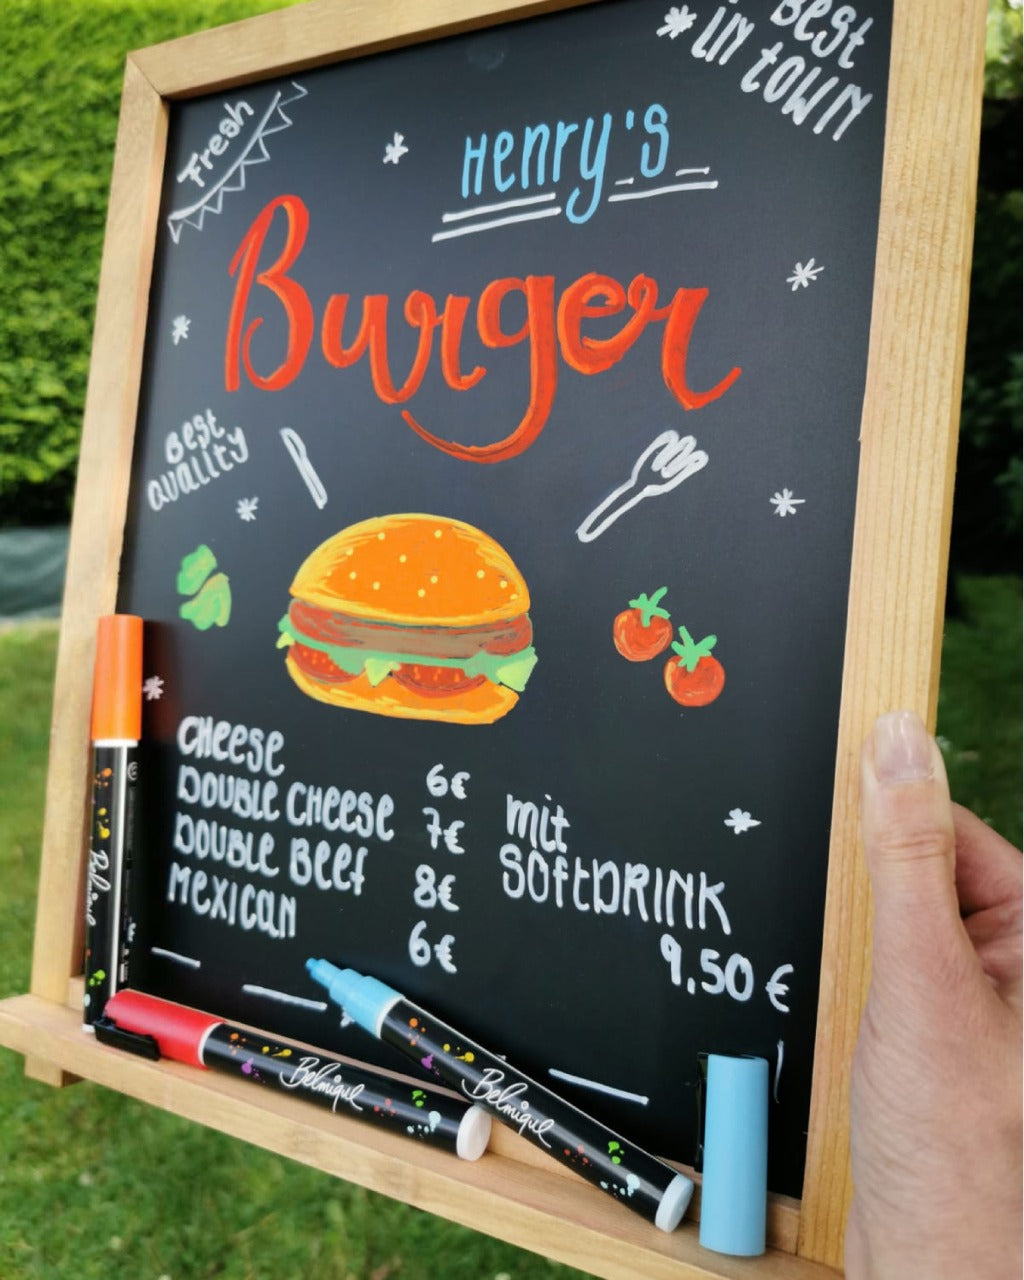 Fresh
Best
in town
Henry's
Burger
Best
Quality
Cheese 6€
Double Cheese 7€
Double Beef 8€
Mexican 6€
mit
Softdrink
9.50 €
Belmique
Belmique
Belmique